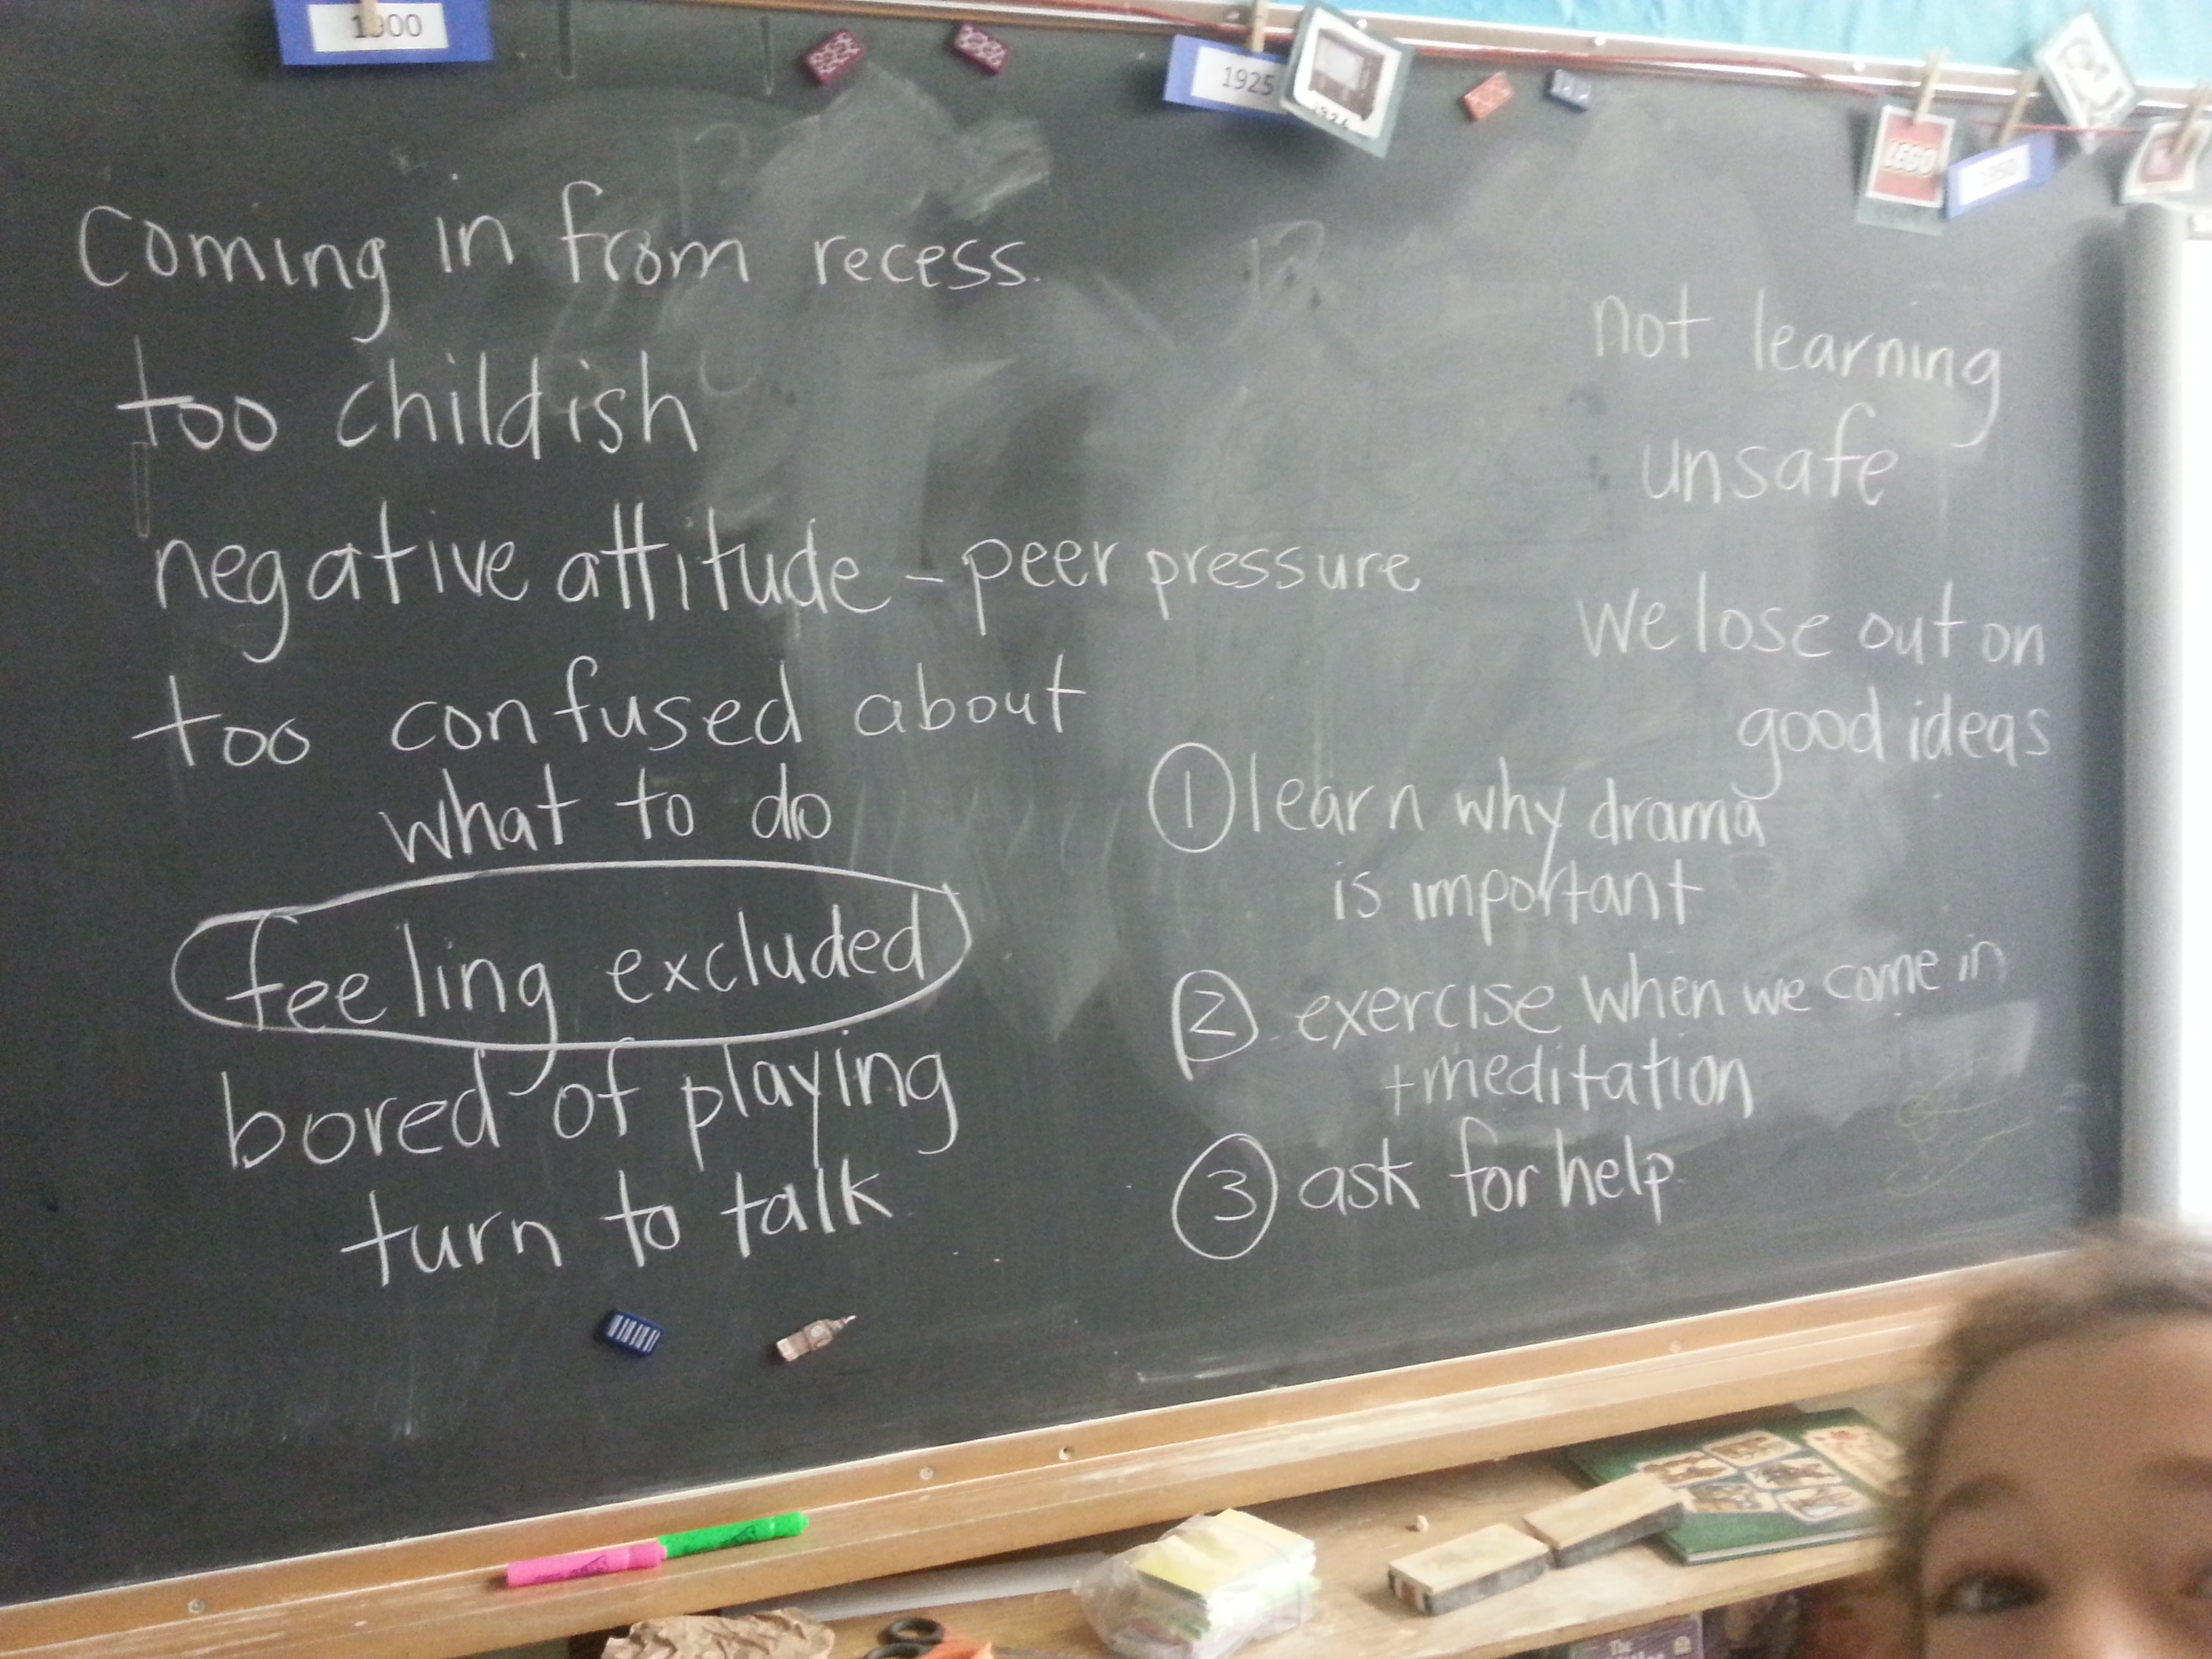 1900
1925
LEGO
1950
Coming in from recess.
too childish
negative attitude - peer pressure
too confused about
what to do
feeling excluded
bored of playing
turn to talk
not learning
unsafe
we lose out on
good ideas
① learn why drama
is important
② exercise when we come in
+ meditation
③ ask for help
The